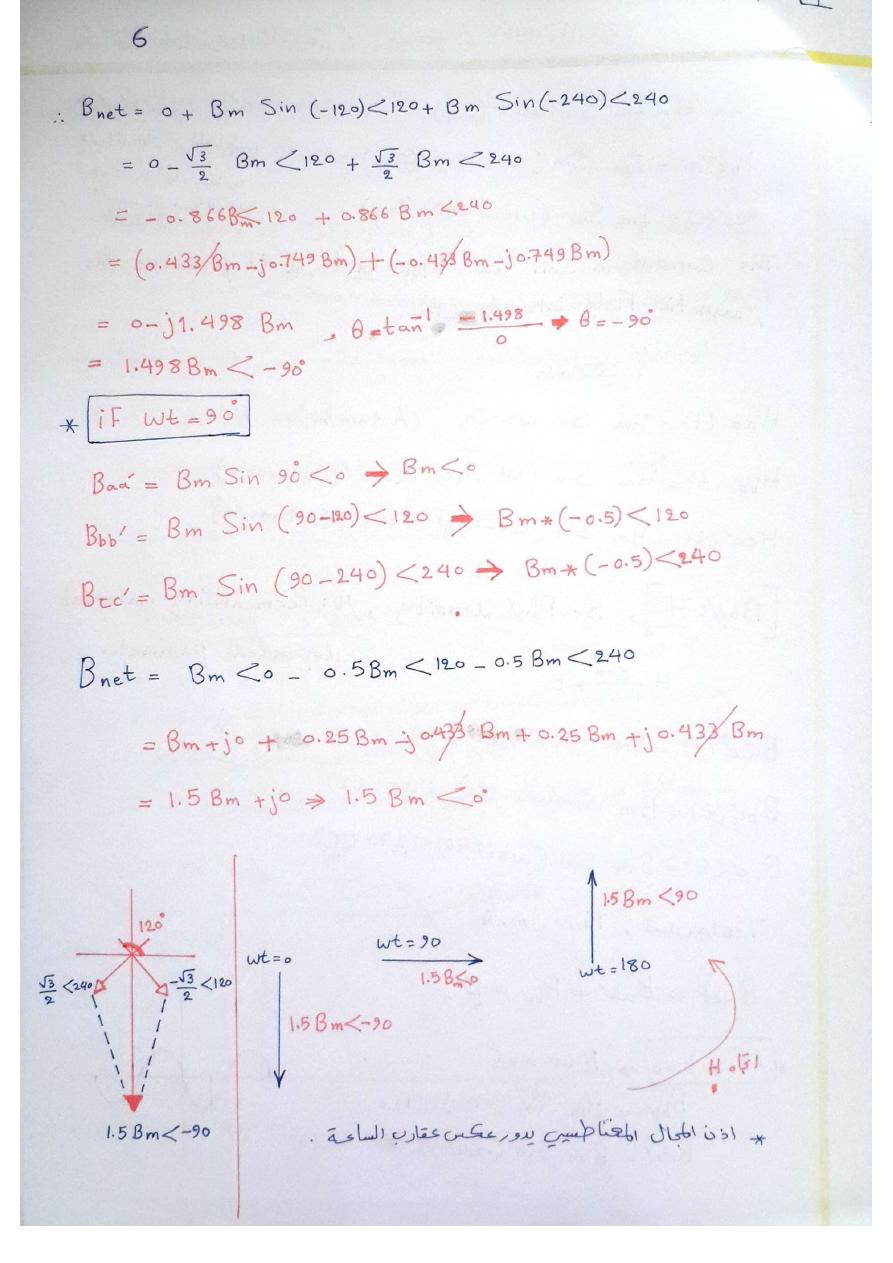 6
∴ Bnet = 0 + Bm Sin (-120)<120 + Bm Sin(-240)<240
= 0 - √3/2 Bm <120 + √3/2 Bm <240
= -0.866Bm< 120 + 0.866 Bm <240
= (0.433 Bm - j0.749 Bm) + (-0.433 Bm - j0.749 Bm)
= 0 - j1.498 Bm , θ = tan⁻¹ -1.498/0 → θ = -90°
= 1.498 Bm < -90°
* if wt = 90°
Baa' = Bm Sin 90° <0 → Bm <0
Bbb' = Bm Sin (90-120) <120 → Bm*(-0.5) <120
Bcc' = Bm Sin (90-240) <240 → Bm*(-0.5) <240
Bnet = Bm <0 - 0.5Bm <120 - 0.5 Bm <240
= Bm + j0 + 0.25 Bm - j 0.433 Bm + 0.25 Bm + j0.433 Bm
= 1.5 Bm + j0 ⇒ 1.5 Bm <0°
120°
√3/2 <240
-√3/2 <120
1.5 Bm <-90
wt = 0
1.5 Bm <-90
wt = 90
1.5 Bm<0
1.5 Bm <90
wt = 180
اتجاه H
* اذن المجال المغناطيسي يدور عكس عقارب الساعة .